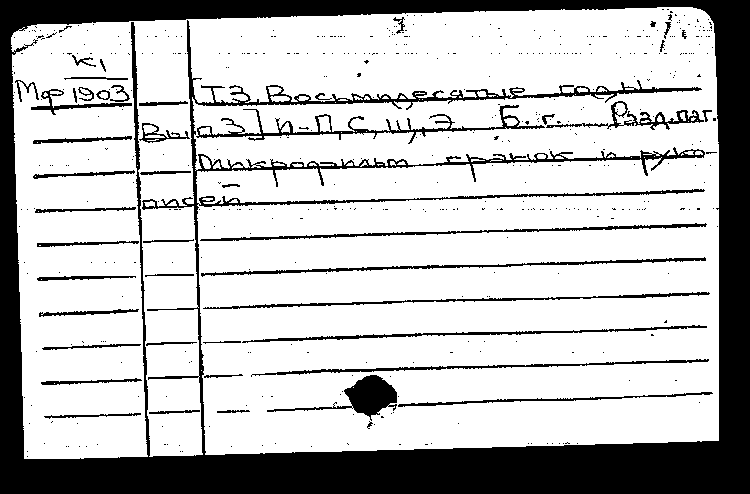 К1
Мф 1903 [Т.3. Восьмидесятые годы.
Вып.3] И-П, С, Ш, Э. Б. г. Разд.паг.
Микрофильм гранок и руко-
писей